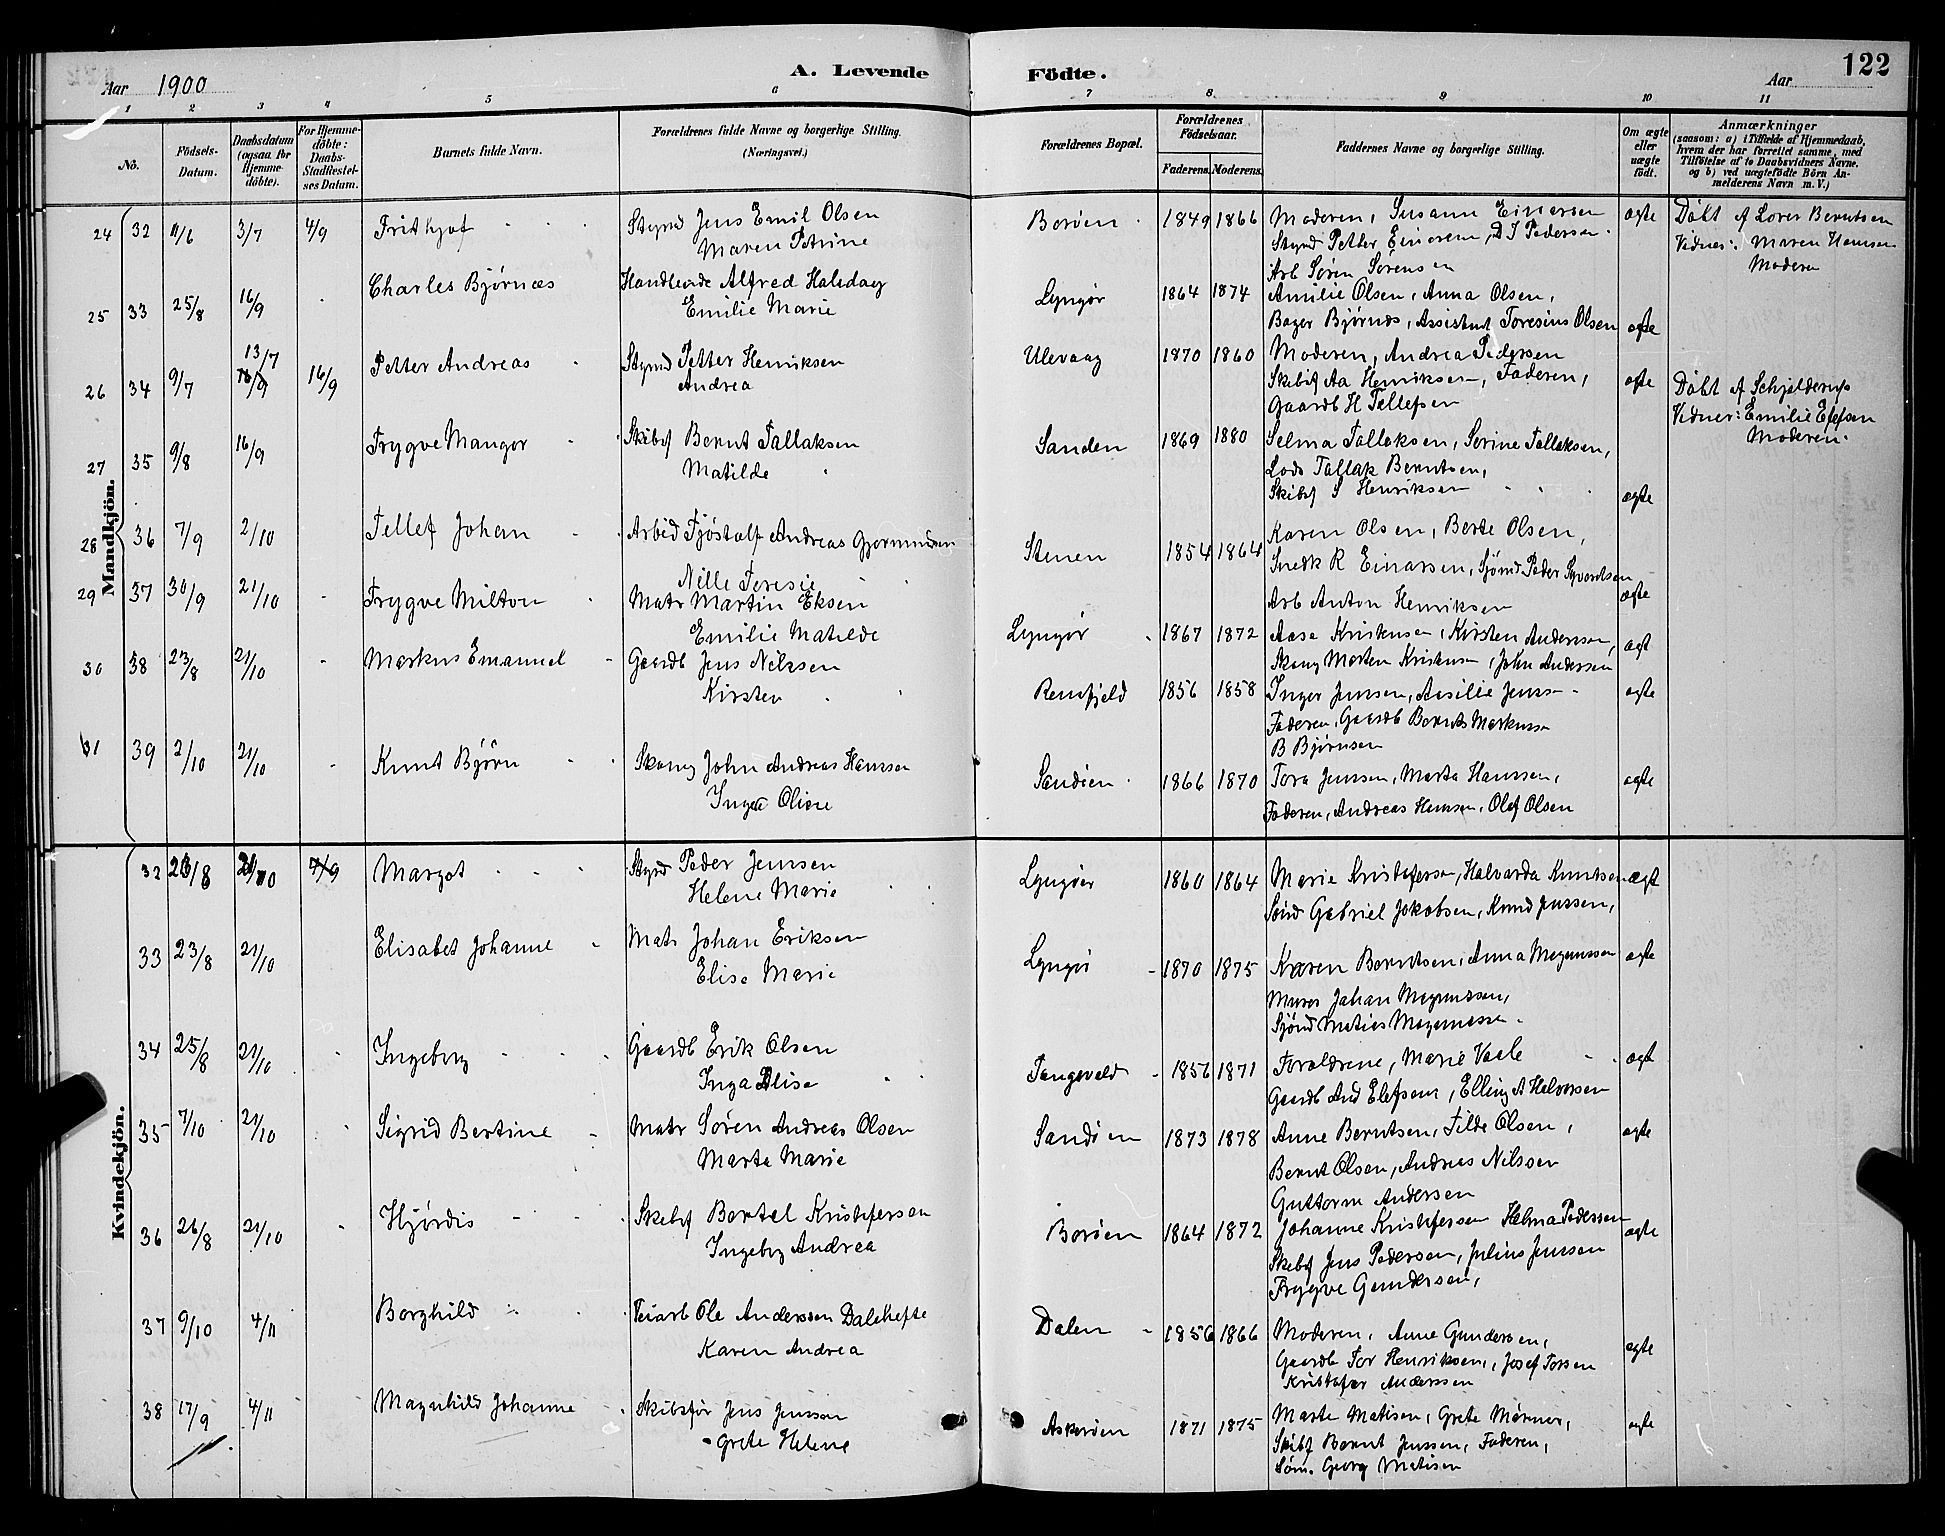 122
Aar 1900
A. Levende
Födte.
Aar
1 2 3 4 5 6 7 8 9 10 11
No.
Födsels-Datum.
Daabsdatum (ogsaa for Hjemmedöbte).
For Hjemmedöbte: Daabs-Stadfestelses Datum.
Barnets fulde Navn.
Forældrenes fulde Navne og borgerlige Stilling. (Næringsvei.)
Forældrenes Bopæl.
Forældrenes Födselsaar.
Faderens. Moderens.
Faddernes Navne og borgerlige Stilling.
Om ægte eller uægte födt.
Anmærkninger
(saasom: a) i Tilfælde af Hjemmedaab, hvem der har forrettet samme, med Tilföielse af to Daabsvidners Navne, og b) ved uægtefödte Börn Anmelderens Navn m. V.)
Mandkjön.
24 32 11/6 3/7 4/9 Frithjof Styrmd Jens Emil Olsen Borøen 1849 1866 Moderen, Susann Einersen ægte Döbt af Lorer Berntsen
Maren Petrine Styrmd Petter Einersen, D J Pedersen Vidner: Maren Hansen
Arb Søren Sørensen Moderen
25 33 25/8 16/9 Charles Bjørnæs Handlende Alfred Halsdag Lyngør 1864 1874 Amilie Olsen, Anna Olsen,
Emilie Marie Bager Bjørnæs, Assistent Toresius Olsen ægte
26 34 9/7 13/7 16/9 16/9 Petter Andreas Styrmd Petter Henriksen Ulevaag 1870 1860 Moderen, Andrea Pedersen
Andrea Skibsf Aa Henriksen, Faderen, ægte Döbt af Schjelderup
Gaardb H Tellefsen Vidner: Emilie Elefsen
Moderen.
27 35 9/8 16/9 Trygve Mangor Skibsf Bernt Tallaksen Sanden 1869 1880 Selma Tallaksen, Serine Tallaksen,
Matilde Lods Tallak Berntsen,
Skibsf S Henriksen ægte
28 36 7/9 2/10 Tellef Johan Arbeid Tjøstolf Andreas Gjermundsen Stenen 1854 1864 Karen Olsen, Berte Olsen,
Nille Toresie Snedk R Einarsen, Sjømd Peder Syvertsen
Arb Anton Henriksen ægte
29 37 30/9 21/10 Trygve Milton Matr Martin Eksen Lyngør 1867 1872 Aase Kristensen, Kirsten Andersen, ægt
Emilie Matilde Skomg Morten Kristensen, John Andersen
30 38 23/8 21/10 Markus Emanuel Gaardb Jens Nilssen Remfjeld 1856 1858 Inger Jensen, Aasilie Jenss ægte
Kirsten Faderen, Gaardb Bernts Markuss
B Bjørnsen
31 39 2/10 21/10 Knut Bjørn Skomg John Andreas Hanssen Sandøen 1866 1870 Tora Jenssen, Marta Hanssen, ægte
Inga Oline Faderen, Andreas Hanssen, Olef Olsen
Kvindekjön.
32 23/8 21/10 7/9 Margot Styrmd Peder Jenssen Lyngøer 1860 1864 Marie Kristofersen, Halvarda Knutsen ægt
Helene Marie Sømd Gabriel Jakobsen, Knud Jenssen,
33 23/8 21/10 Elisabet Johanne Matr Johan Eriksen Lyngør 1870 1875 Karen Berntsen, Anna Magnussen ægte
Elise Marie Murer Johan Magnussen,
Sjømd Matias Magnussen
34 25/8 21/10 Ingeborg Gaardb Erik Olsen Tangevald 1856 1871 Forældrene, Marie Vaale ægt
Inga Elise Gaardb And Elefsen, Elling A Halvorsen
35 7/10 21/10 Sigrid Bertine Matr Søren Andreas Olsen Sandøen 1873 1878 Anne Berntsen, Tilda Olsen, ægte
Marte Marie Bernt Olsen, Andreas Nilssen
Guttorm Andersen
36 26/8 21/10 Hjørdis Skibsf Bertel Kristofersen Borøen 1864 1872 Johanne Kristofersen Helma Pedersen ægte
Ingeborg Andrea Skibsf Jens Pedersen, Julius Jenssen
Trygve Gundersen,
37 9/10 4/11 Borghild Veiarb Ole Anderssen Dalehefte Dalen 1856 1866 Moderen, Anne Gundersen,
Karen Andrea Gaardb Tor Henriksen, Josef Torsen ægte
Kristofer Anderssen
38 17/9 4/11 Magnhild Johanne Skibsfør Jens Jenssen Askerøen 1871 1875 Marte Matisen, Grete Mørner, ægte
Grete Helene Skibsf Bernt Jenssen, Faderen,
Søm. Georg Matisen